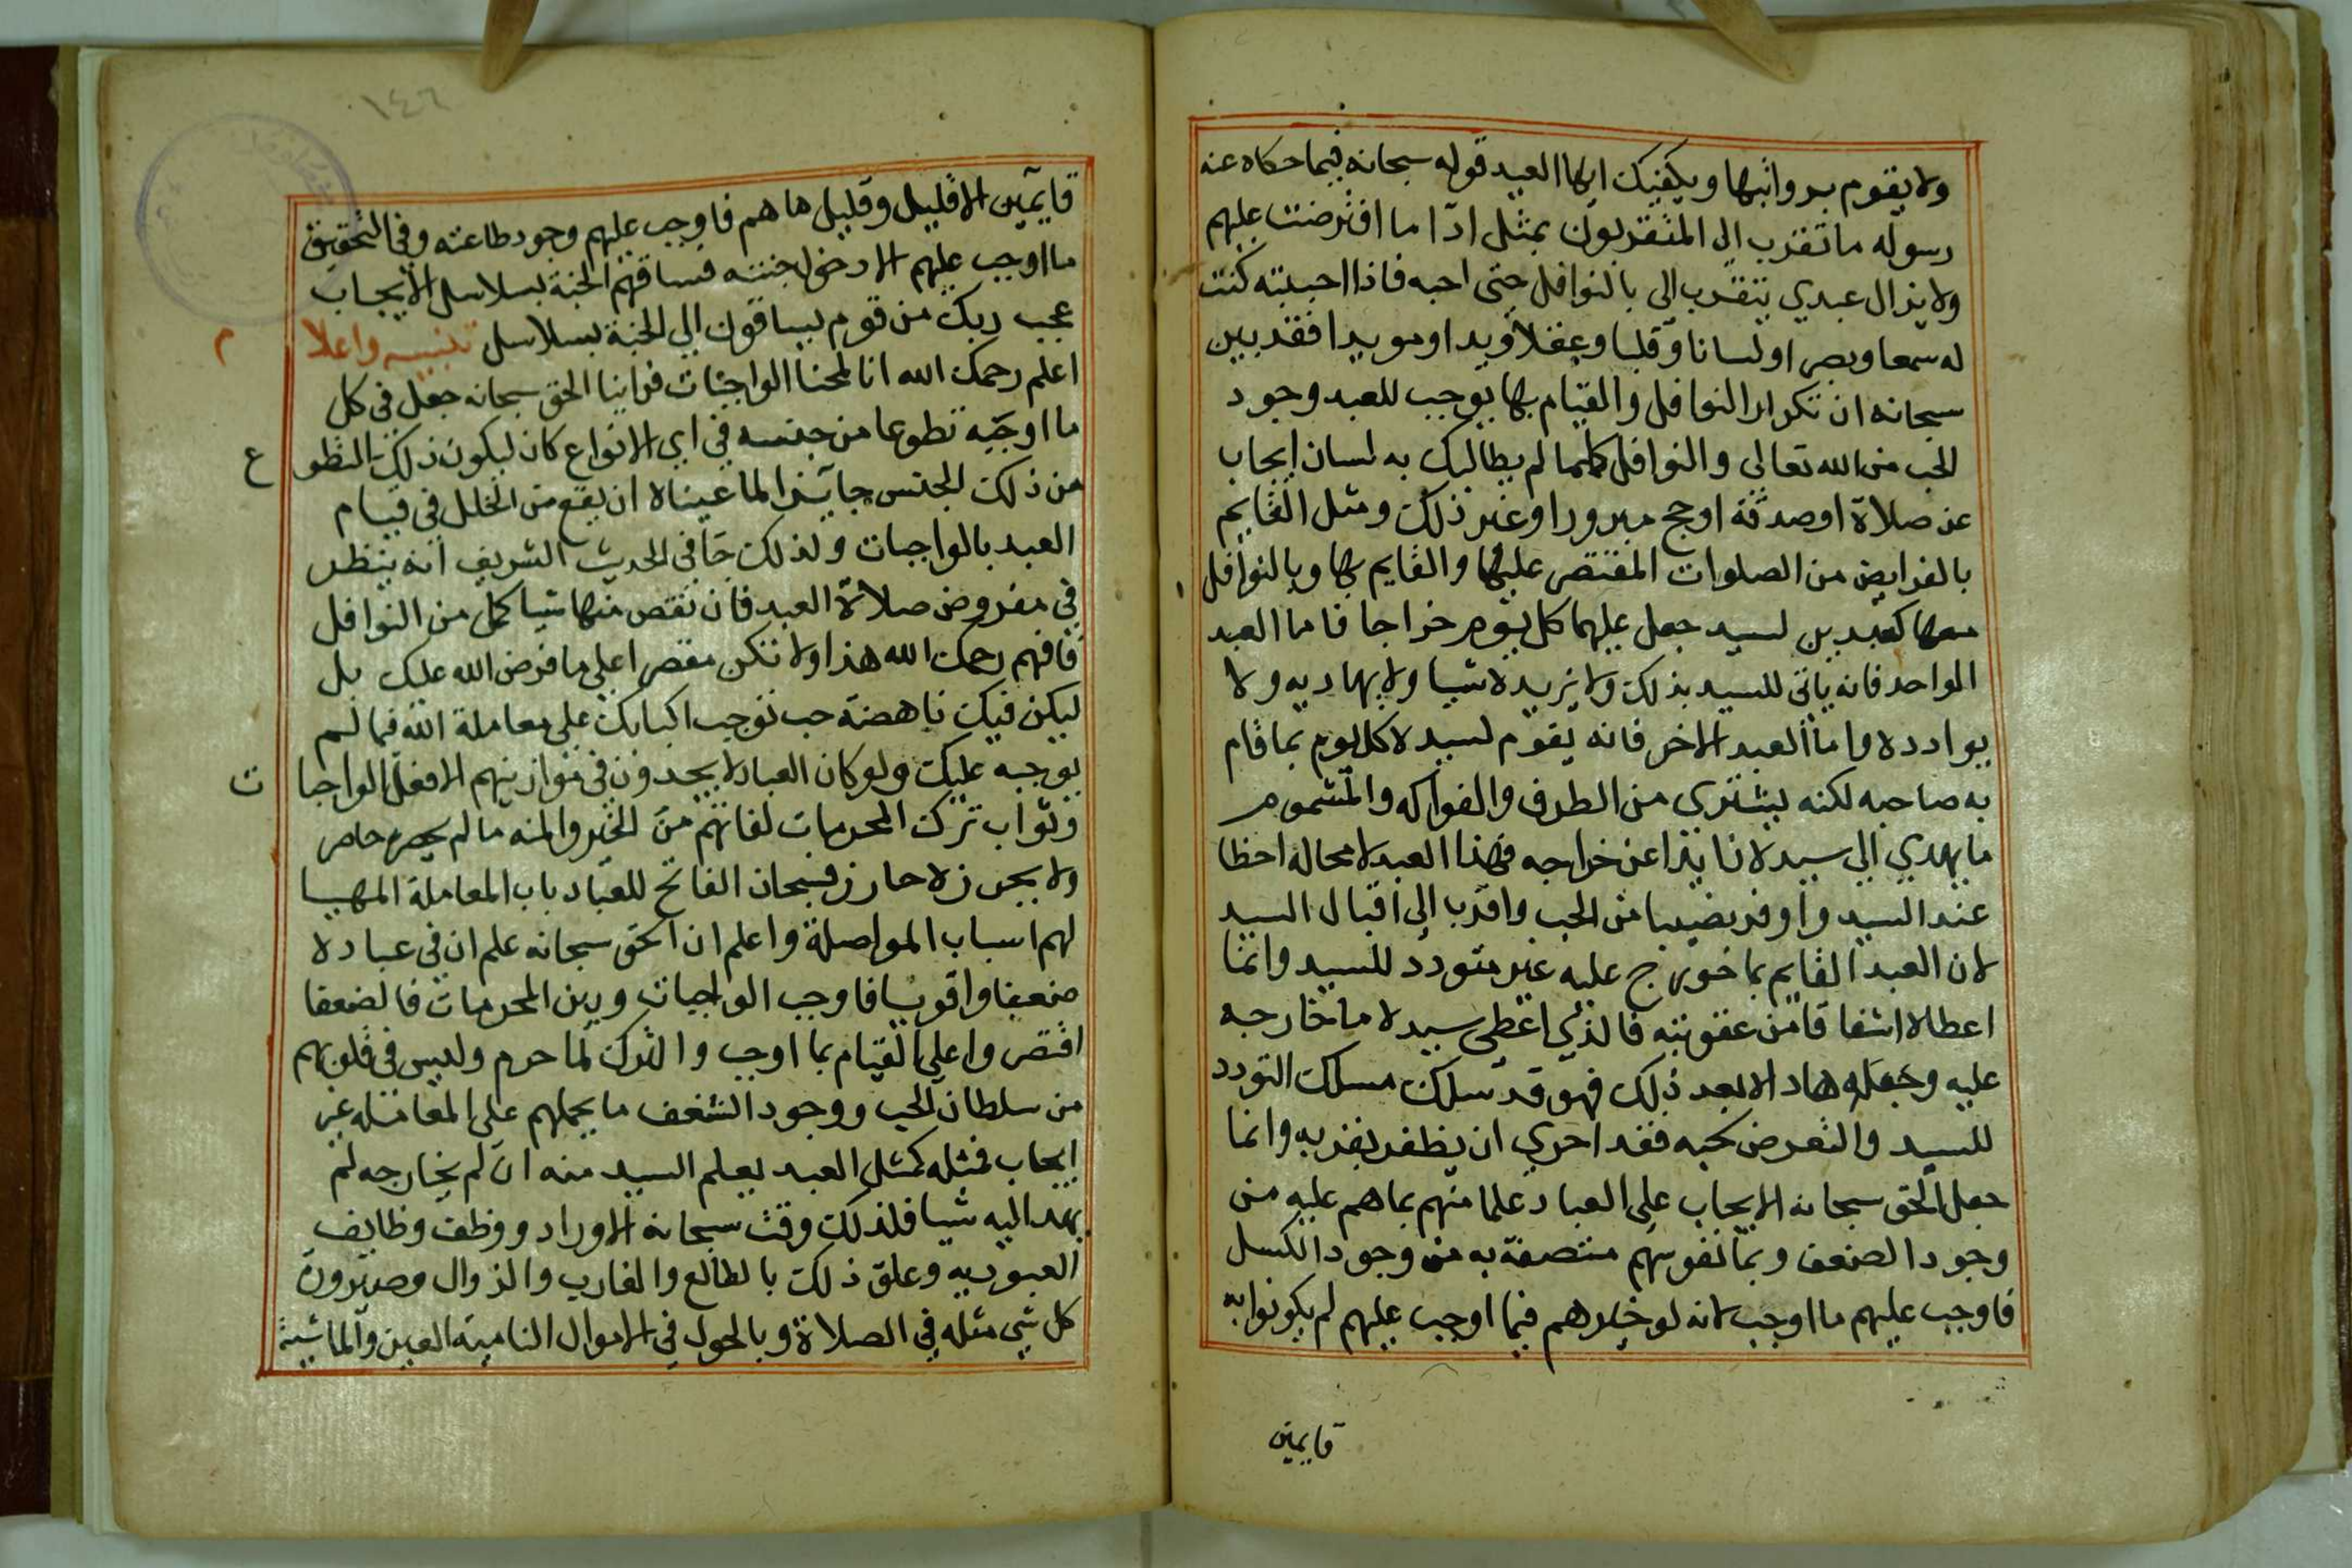 ولا يقوم برواتبها ويكفيك ايها العبد قوله سبحانه فيما حكاه عنه
رسوله ما تقرب الي المتقربون بمثل ادا ما افترضت عليهم
ولا يزال عبدي يتقرب الي بالنوافل حتى احبه فاذا احببته كنت
له سمعا وبصرا ولسانا وقلبا وعقلا ويدا ومويدا فقد بين
سبحانه ان تكرار النوافل والقيام بها يوجب للعبد وجود
الحب من الله تعالي والنوافل كلما لم يطالبك به لسان ايجاب
عن صلاة او صدقة او حج مبرورا وغير ذلك ومثل القايم
بالفرايض من الصلوات المقتصر عليها والقايم بها وبالنوافل
معها كعبدين لسيد جعل عليهما كل يوم خراجا فاما العبد
الواحد فانه ياتي للسيد بذلك ولا يزيده شيا ولا يهاديه ولا
يوادده واما العبد الاخر فانه يقوم لسيده كل يوم بما قام
به صاحبه لكنه يشتري من الطرف والفواكه والمشموم
ما يهدي الي سيده زايدا عن خراجه فهذا العبد لا محالة احظا
عند السيد واوفر نصيبا من الحب واقرب الي اقبال السيد
لان العبد القايم بما خورج عليه غير متودد للسيد وانما
اعطاه اشفاقا من عقوبته فالذي اعطي سيده ما خارجه
عليه وجعله هاداه بعد ذلك فهو قد سلك مسلك التودد
للسيد والتعرض لحبه فقد احري ان يظفر بقربه وانما
جعل الحق سبحانه الايجاب علي العباد علما منهم بما هم عليه من
وجود الضعف وبما نفوسهم متصفة به من وجود الكسل
فاوجب عليهم ما اوجب لانه لو خيرهم فيما اوجب عليهم لم يكونوا به
قايمين
١٤٦
قايمين الا قليل وقليل ما هم فاوجب عليهم وجود طاعته وفي التحقيق
ما اوجب عليهم الا دخول جنته فساقهم الجنة بسلاسل الايجاب
عجب ربك من قوم يساقون الي الجنة بسلاسل تنبيه واعلام
اعلم رحمك الله انا لمحنا الواجبات فراينا الحق سبحانه جعل في كل
ما اوجبه تطوعا من جنسه في اي الانواع كان ليكون ذلك التطوع
من ذلك الجنس جابرا لما عيناه ان يقع من الخلل في قيام
العبد بالواجبات ولذلك جا في الحديث الشريف انه ينظر
في مفروض صلاة العبد فان نقص منها شيا كمل من النوافل
فافهم رحمك الله هذا ولا تكن مقتصرا علي ما فرض الله عليك بل
ليكن فيك ناهضة حب توجب اكبابك علي معاملة الله فيما لم
يوجبه عليك ولو كان العباد لا يجدون في موازينهم الا فعل الواجبات
وثواب ترك المحرمات لفاتهم من الخير والمنه ما لم يحصره حاصر
ولا يحرزه حارز فسبحان الفاتح للعباد باب المعاملة المهيا
لهم اسباب المواصلة واعلم ان الحق سبحانه علم ان في عباده
ضعفا واقويا فاوجب الواجبات وبين المحرمات فالضعفا
اقتصروا علي القيام بما اوجب والترك لما حرم وليس في قلوبهم
من سلطان الحب ووجود الشغف ما يحملهم علي المعاملة غير
ايجاب فمثله كمثل العبد يعلم السيد منه ان لم يخارجه لم
يهد اليه شيا فلذلك وقت سبحانه الاوراد ووظف وظايف
العبوديه وعلق ذلك بالطالع والغارب والزوال وصيرورة
كل شي مثله في الصلاة وبالحول في الاموال النامية العين والماشية